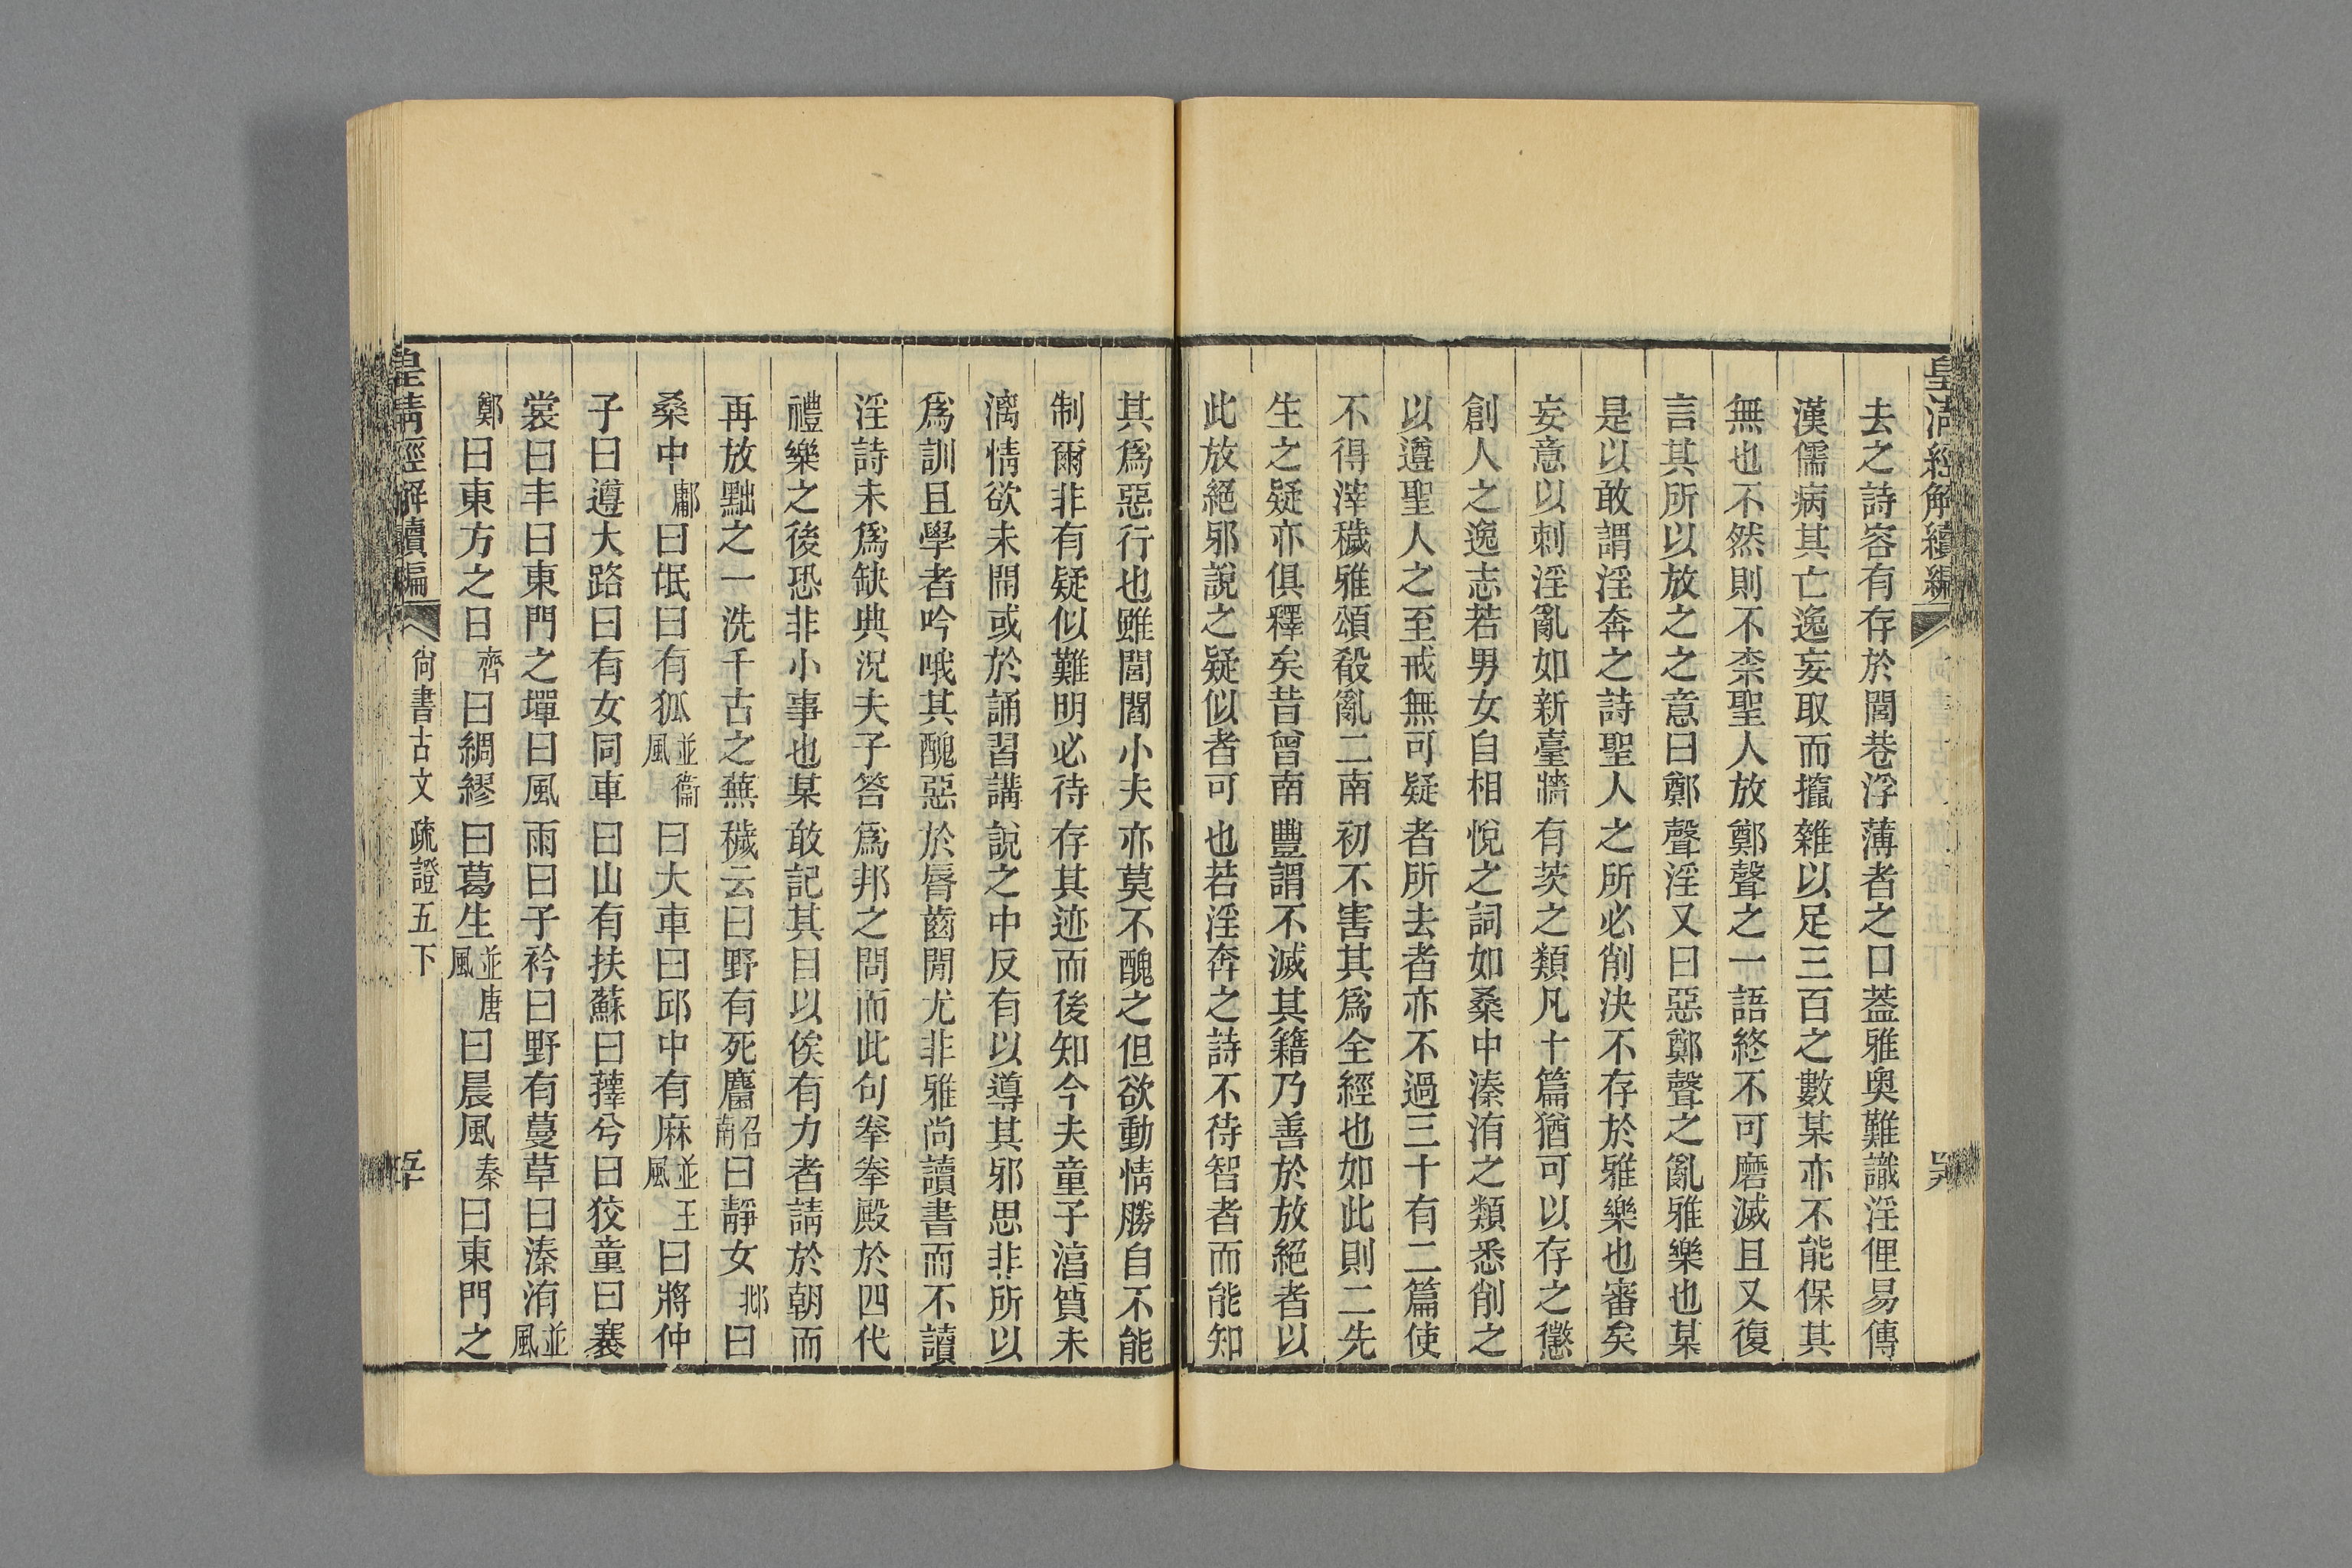 皇清經解續編
去之詩容有存於閭巷浮薄者之口蓋雅奧難識淫俚易傳
漢儒病其亡逸妄取而攛雜以足三百之數某亦不能保其
無也不然則不柰聖人放鄭聲之一語終不可磨滅且又復
言其所以放之之意曰鄭聲淫又曰惡鄭聲之亂雅樂也某
是以敢謂淫奔之詩聖人之所必削決不存於雅樂也審矣
妄意以刺淫亂如新臺牆有茨之類凡十篇猶可以存之懲
創人之逸志若男女自相悅之詞如桑中溱洧之類悉削之
以遵聖人之至戒無可疑者所去者亦不過三十有二篇使
不得滓穢雅頌殽亂二南初不害其爲全經也如此則二先
生之疑亦俱釋矣昔曾南豐謂不滅其籍乃善於放絕者以
此放絕邪說之疑似者可也若淫奔之詩不待智者而能知
其爲惡行也雖閭閻小夫亦莫不醜之但欲動情勝自不能
制爾非有疑似難明必待存其迹而後知今夫童子淳質未
漓情欲未開或於誦習講說之中反有以導其邪思非所以
爲訓且學者吟哦其醜惡於脣齒閒尤非雅尚讀書而不讀
淫詩未爲缺典況夫子答爲邦之問而此句拳拳殿於四代
禮樂之後恐非小事也某敢記其目以俟有力者請於朝而
再放黜之一洗千古之蕪穢云曰野有死麕召南曰靜女邶曰
桑中鄘曰氓曰有狐並衞風曰大車曰邱中有麻並王風曰將仲
子曰遵大路曰有女同車曰山有扶蘇曰蘀兮曰狡童曰褰
裳曰丰曰東門之墠曰風雨曰子衿曰野有蔓草曰溱洧並風
鄭曰東方之日齊曰綢繆曰葛生並唐風曰晨風秦曰東門之
皇清經解續編
尙書古文疏證五下